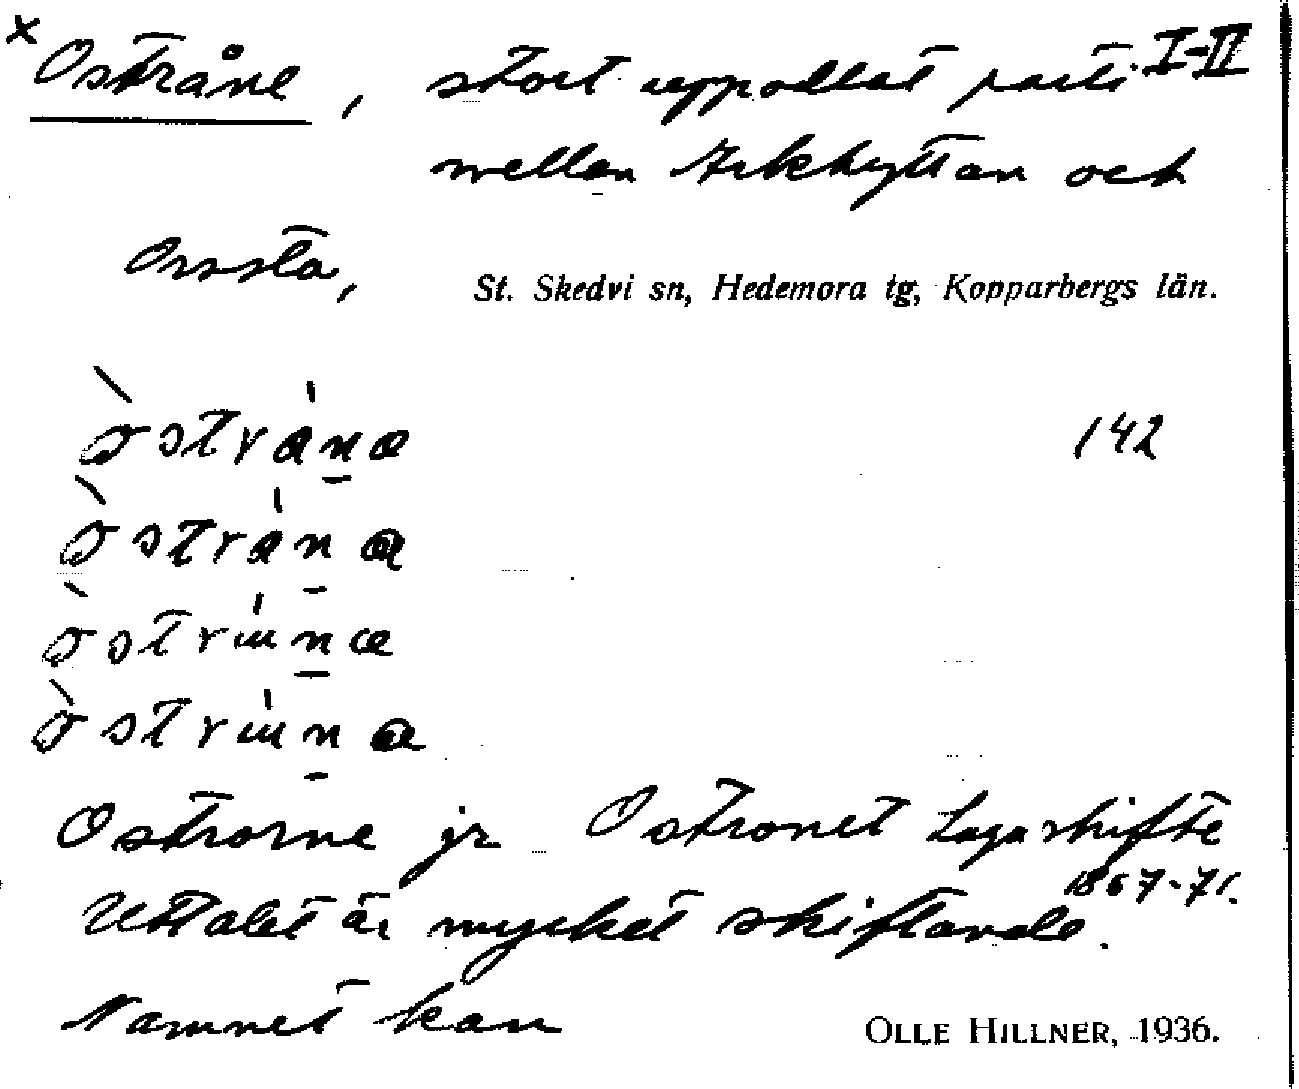 x Ostråne, stort uppodlat parti I-II
mellan Arkhyttan och
Orssta,
St. Skedvi sn, Hedemora tg, Kopparbergs län.
142
Ostrorne jr Ostronet Laga skifte
1867-71.
Uttalet är mycket skiftande.
Namnet kan
OLLE HILLNER, 1936.